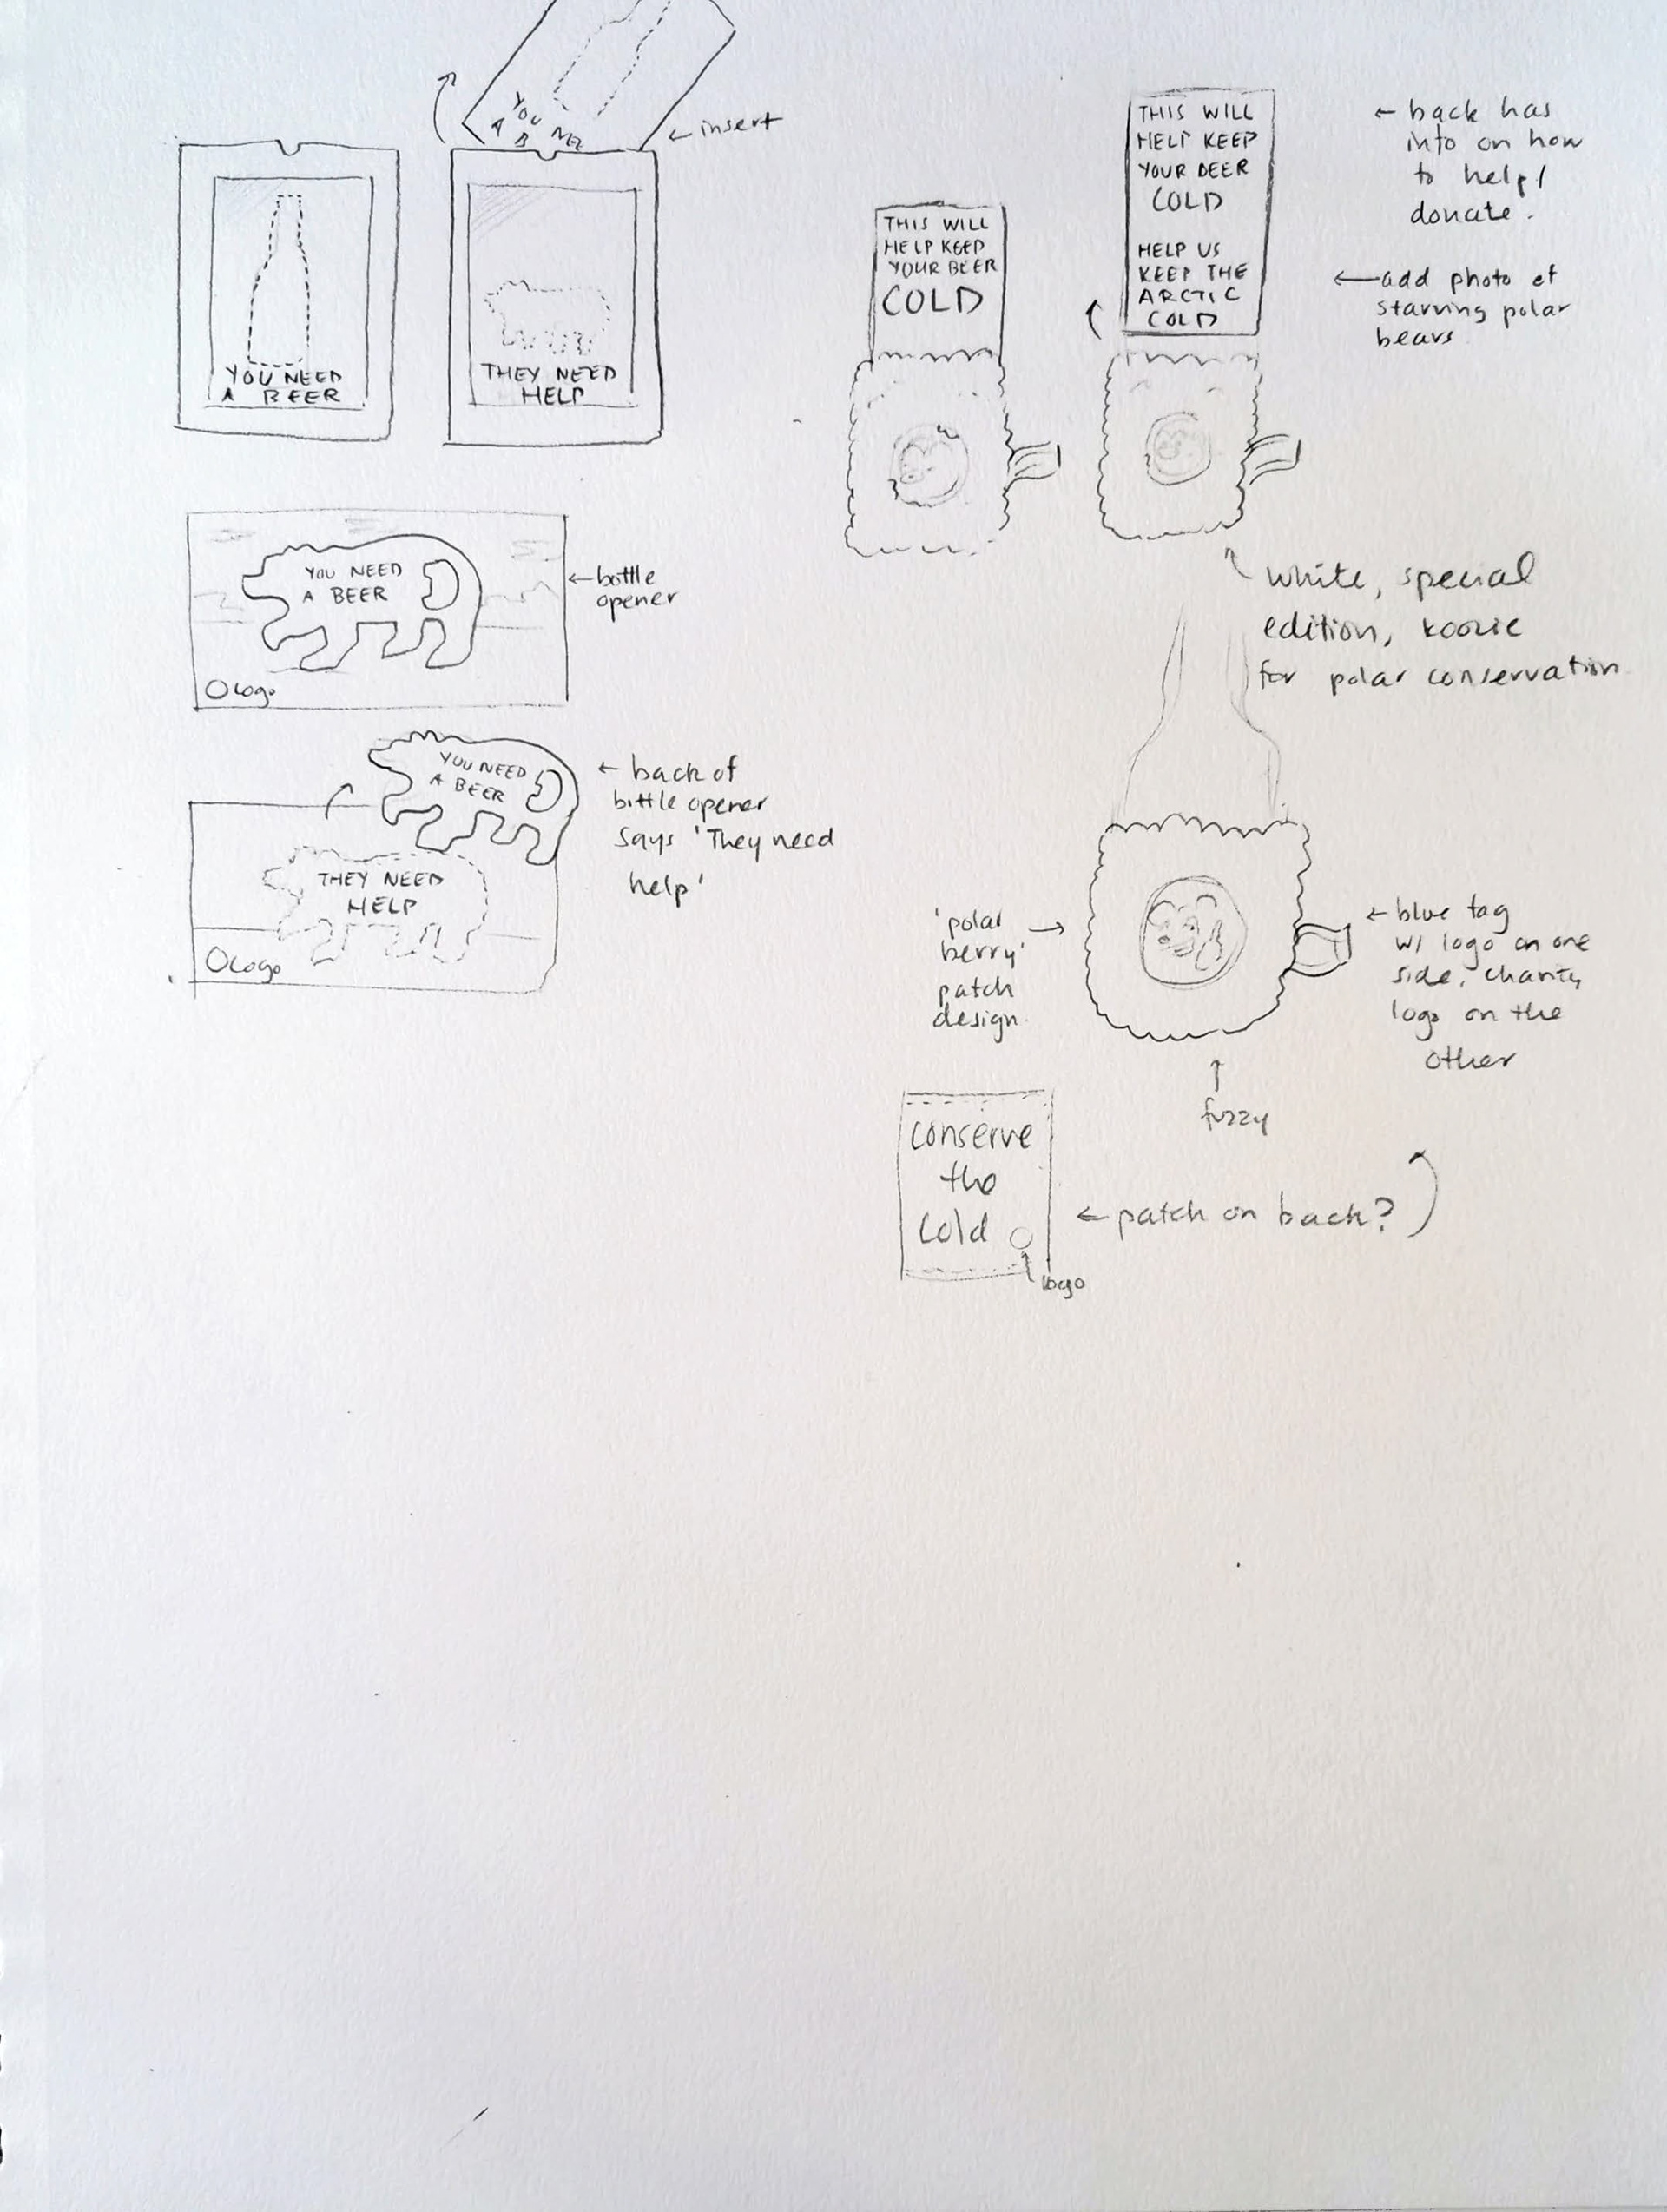 YOU NEE
A B
← insert
YOU NEED
A BEER
THEY NEED
HELP
YOU NEED
A BEER
← bottle
opener
Logo
YOU NEED
A BEER
← back of
bottle opener
says 'They need
help'
THEY NEED
HELP
Logo
THIS WILL
HELP KEEP
YOUR BEER
COLD
THIS WILL
HELP KEEP
YOUR BEER
COLD
HELP US
KEEP THE
ARCTIC
COLD
← back has
info on how
to help/
donate.
← add photo of
starving polar
bears
white, special
edition, koozie
for polar conservation
'polar →
berry'
patch
design
← blue tag
w/ logo on one
side, charity
logo on the
other
fuzzy
conserve
the
cold
logo
← patch on back?